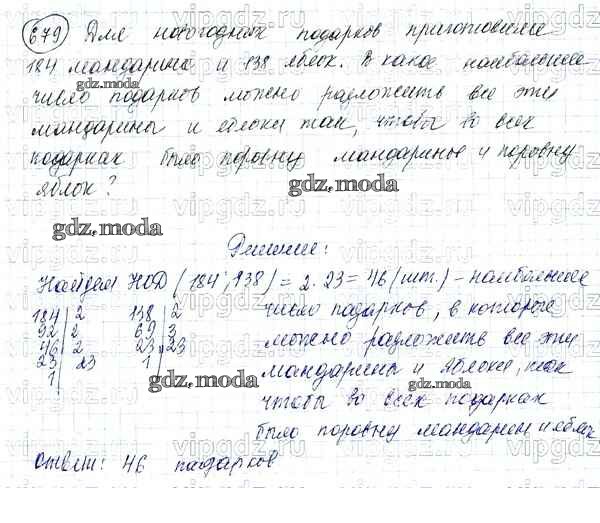 679 Для новогодних подарков приготовили
184 мандарина и 138 яблок. В какое наибольшее
число подарков можно разложить все эти
мандарины и яблоки так, чтобы во всех
подарках было поровну мандаринов и поровну
яблок?
gdz.moda
gdz.moda
Решение:
Найдем НОД (184; 138) = 2 · 23 = 46 (шт.) - наибольшее
число подарков, в которые
можно разложить все эти
мандарины и яблоки, так
чтобы во всех подарках
было поровну мандарин и яблок
184 2 138 2
92 2 69 3
46 2 23 23
23 23 1
1
gdz.moda
gdz.moda
Ответ: 46 подарков
gdz.moda